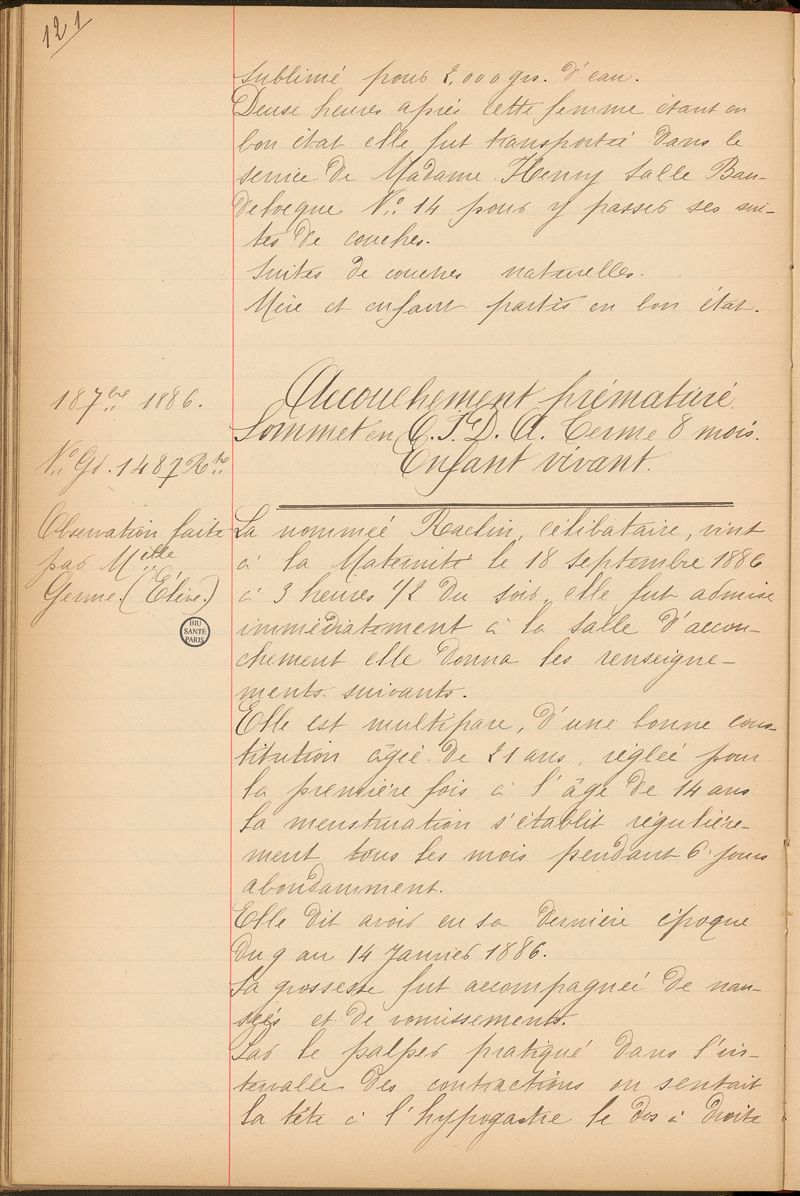 121
sublimé pour 2,000 grs. d'eau.
Deuse heures aprés cette femme étant en
bon état elle fut transportée dans le
service de Madame Henry salle Bau-
delocque N.° 14 pour y passer ses sui-
tes de couches.
Suites de couches naturelles.
Mère et enfant partis en bon état.
18 7bre 1886.
Accouchement prématuré.
Sommet en O.I.D.A. Terme 8 mois.
N.° Gd. 1487 Rte
Enfant vivant.
Observation faite
par Melle
Germe. (Élève.)
BIU
SANTÉ
PARIS
La nommée Raclin, célibataire, vint
à la Maternité le 18 septembre 1886
à 3 heures 1/2 du soir, elle fut admise
immédiatement à la salle d'accou-
chement elle donna les renseigne-
ments suivants.
Elle est multipare, d'une bonne cons-
titution âgée de 21 ans, réglée pour
la première fois à l'âge de 14 ans
la menstruation s'établit régulière-
ment tous les mois pendant 6 jours
abondamment.
Elle dit avoir eu sa dernière époque
du 9 au 14 Janvier 1886.
La grossesse fut accompagnée de nau-
sées et de vomissements.
Par le palper pratiqué dans l'in-
tervalle des contractions on sentait
la tête à l'hypogastre le dos à droite